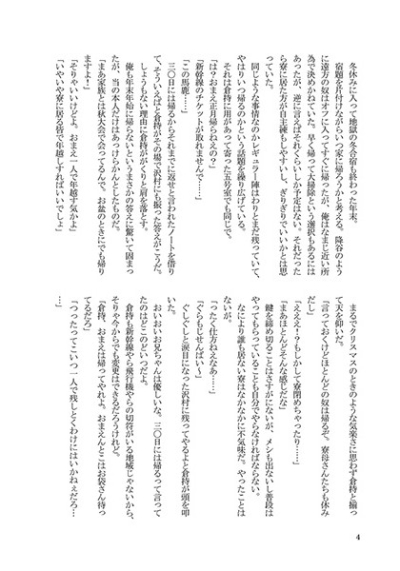 冬休みに入って地獄の冬合宿も終わった年末。
宿題を片付けながらいつ家に帰ろうかと考える。降谷のよう
に遠方の奴はオフに入ってすぐに帰ったが、俺はなまじ近い所
為で決めかねていた。早く帰って大掃除という選択もあるには
あったが、逆に言えばそれくらいしか予定はない。それだった
ら寮に居た方が自主練もしやすいし、ぎりぎりでいいかとは思
っていた。
同じような事情なのかレギュラー陣はわりとまだ残っていて、
やはりいつ帰るのかという話題を繰り広げている。
それは倉持に用があって寄った五号室でも同じで。
「は？おまえ正月帰らねえの？」
「新幹線のチケットが取れませんで……」
「この馬鹿……」
三〇日には帰るからそれまでに返せと言われたノートを借り
て、そういえばと倉持がその場で沢村にも振った答えがこうだ。
しょうもない理由に倉持ががくりと肩を落とす。
俺も年末年始に帰らないというまさかの答えに驚いて固まっ
たが、当の本人だけはあっけらかんとしたものだ。
「まあ家族とは秋大会で会ってるんで、お盆のときにでも帰り
ますよ！」
「そりゃいいけどよ。おまえ一人で年越す気かよ」
「いやいや寮に居る皆で年越しすればいいでしょ」
まるでクリスマスのときのような気楽さに思わず倉持と揃っ
て天を仰いだ。
「言っておくけどほとんどの奴は帰るぞ。寮母さんたちも休み
だし」
「えええ！？もしかして寮閉めちゃったり……」
「まあほとんどそんな感じだな」
鍵を締め切ることはさすがにないが、メシも出ないし普段は
やってもらっていることも自分でやらなければならない。
なにより誰も居ない寮はなかなかに不気味だ。やったことは
ないが。
「ったく仕方ねえなあ……」
「ぐらもじせんぱい～」
ぐしぐしと涙目になった沢村に残ってやるよと倉持が頭を叩
いた。
おいおいお兄ちゃんは優しいな。三〇日には帰るって言って
たのはどこのどいつだよ。
倉持も新幹線やら飛行機やらの切符がいる地域じゃないから、
そりゃ今からでも変更はできるだろうけれど。
「倉持、おまえは帰ってやれよ。おまえんとこはお袋さん待っ
てるだろ」
「つったってこいつ一人で残しとくわけにはいかねぇだろ…
…」
4